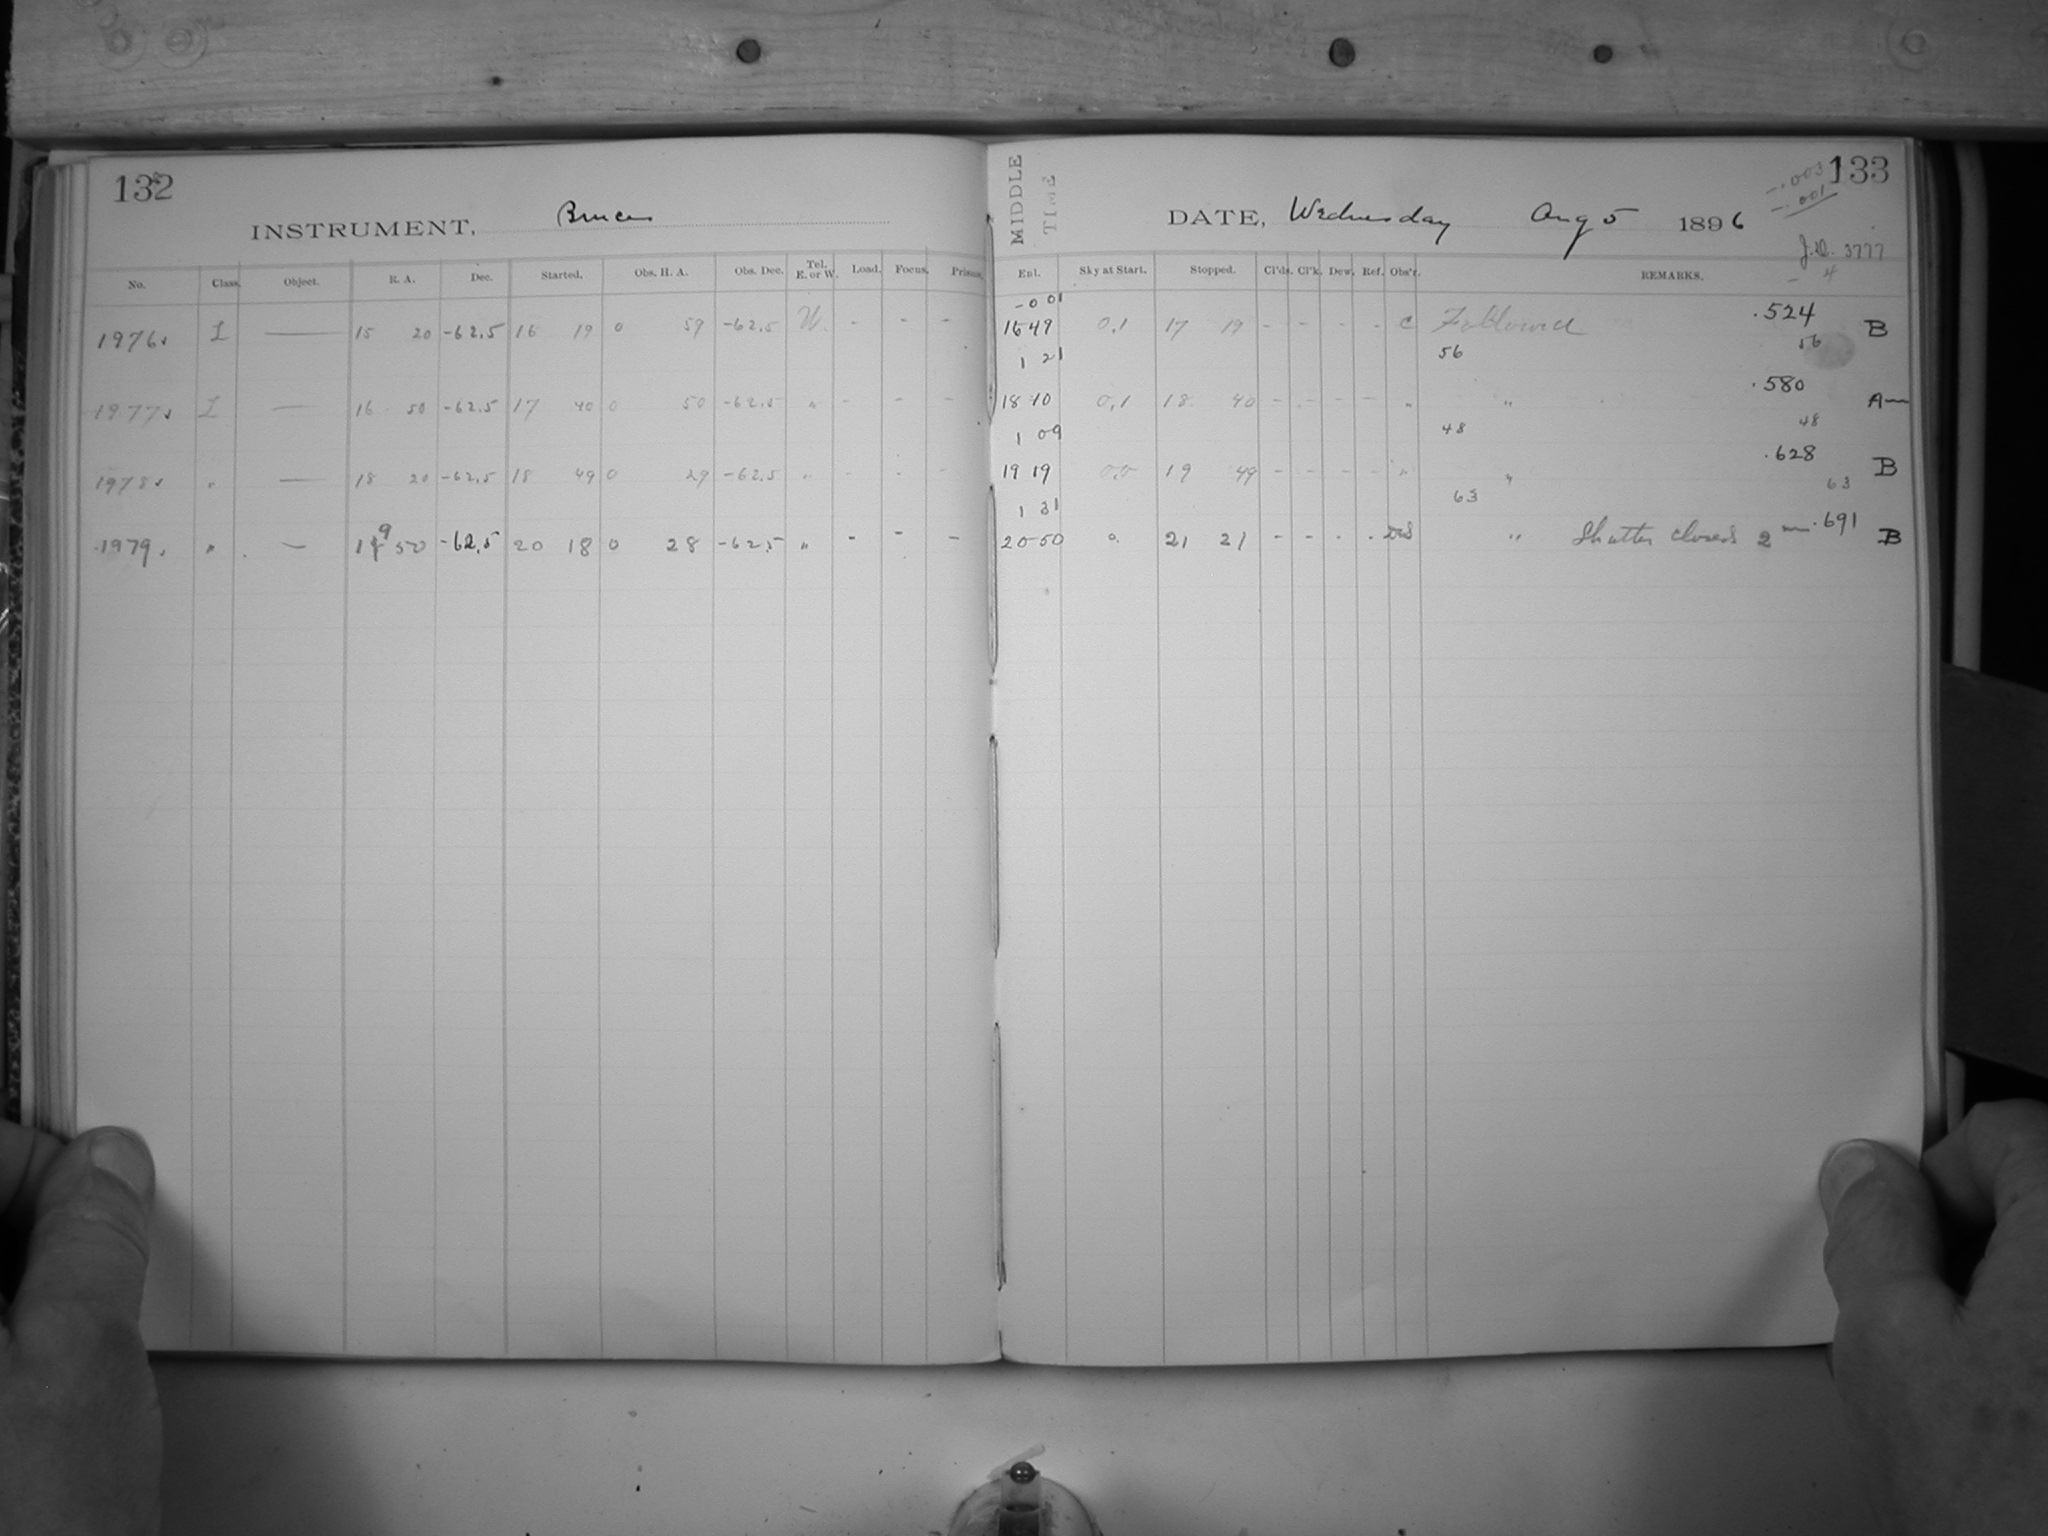 132
INSTRUMENT, Bruce
No. Class. Object. R. A. Dec. Started. Obs. H. A. Obs. Dec. Tel. E. or W. Load. Focus. Prisms.
1976 I — 15 20 -62.5 16 19 0 59 -62.5 W. - - -
1977 I — 16 50 -62.5 17 40 0 50 -62.5 " - - -
1978 " — 18 20 -62.5 18 49 0 29 -62.5 " - - -
1979 " — 19 50 -62.5 20 18 0 28 -62.5 " - - -
MIDDLE TIME
133
-.003
-.001
DATE, Wednesday Aug 5 1896
J.D. 3777
- 4
Enl. Sky at Start. Stopped. Cl'ds. Cl'k. Dew. Ref. Obs'r. REMARKS.
-0 01
16 49 0,1 17 19 - - - - C Followed .524 B
1 21 56 56
18 10 0,1 18 40 - - - - " " .580 A—
1 09 48 48
19 19 0,0 19 49 - - - - " " .628 B
1 31 63 63
20 50 0. 21 21 - - - - " Shutter closed 2 m .691 B